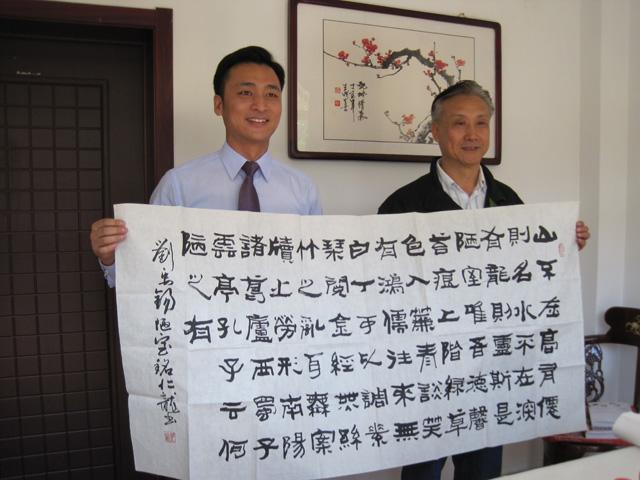 山不在高有僊
則名水不在深
有龍則靈斯是
陋室唯吾德馨
苔痕上階綠草
色入簾青談笑
有鴻儒往來無
白丁可以調素
琴閱金經無絲
竹之亂耳無案
牘之勞形南陽
諸葛廬西蜀子
雲亭孔子云何
陋之有
劉禹錫陋室銘仁龍書